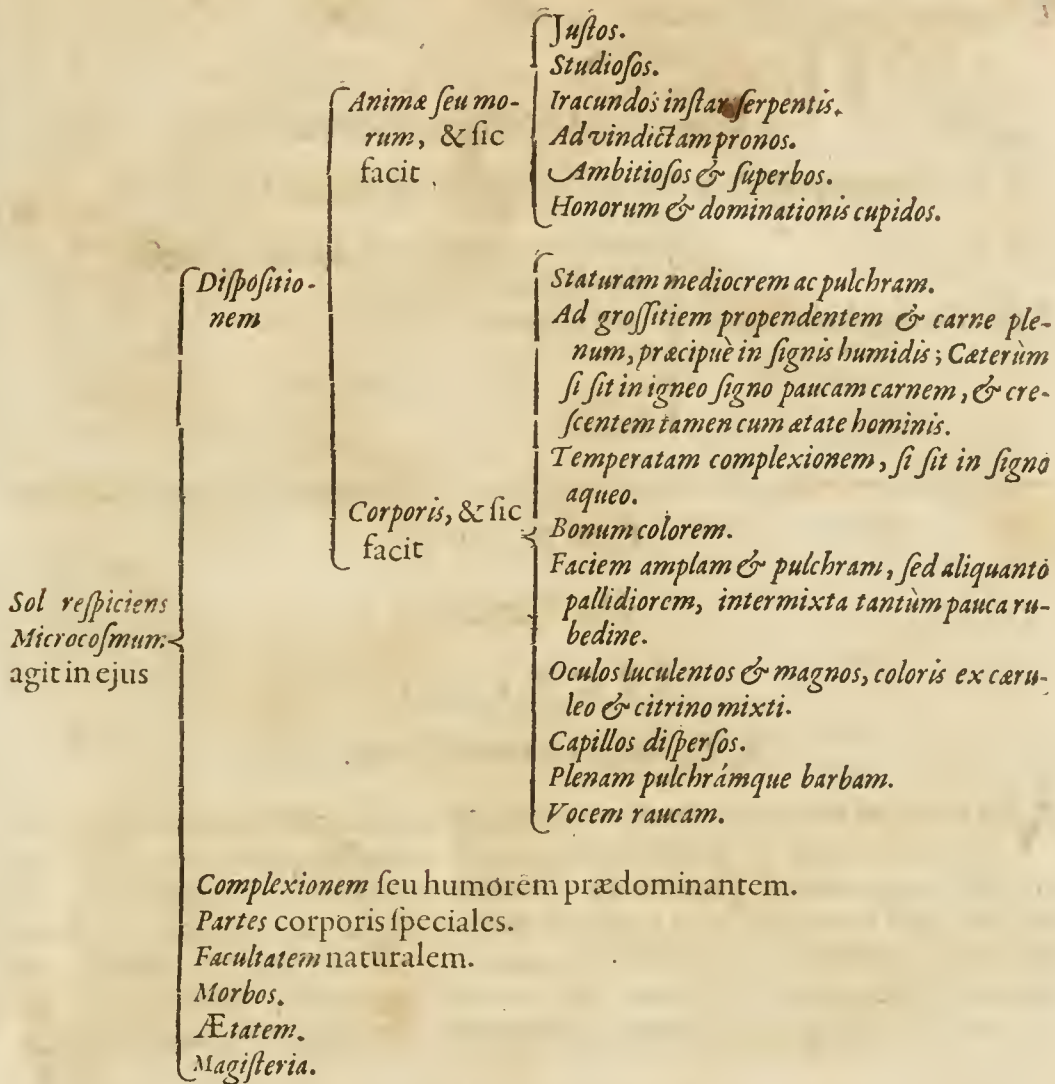 Sol reſpiciens
Microcoſmum
agit in ejus
Diſpoſitio-
nem
Animæ ſeu mo-
rum, & ſic
facit
Juſtos.
Studioſos.
Iracundos inſtar ſerpentis.
Ad vindictam pronos.
Ambitioſos & ſuperbos.
Honorum & dominationis cupidos.
Corporis, & ſic
facit
Staturam mediocrem ac pulchram.
Ad groſſitiem propendentem & carne ple-
num, præcipuè in ſignis humidis; Cæterùm
ſi ſit in igneo ſigno paucam carnem, & cre-
ſcentem tamen cum ætate hominis.
Temperatam complexionem, ſi ſit in ſigno
aqueo.
Bonum colorem.
Faciem amplam & pulchram, ſed aliquantò
pallidiorem, intermixta tantùm pauca ru-
bedine.
Oculos luculentos & magnos, coloris ex cæru-
leo & citrino mixti.
Capillos diſperſos.
Plenam pulchrámque barbam.
Vocem raucam.
Complexionem ſeu humorem prædominantem.
Partes corporis ſpeciales.
Facultatem naturalem.
Morbos.
Ætatem.
Magiſteria.